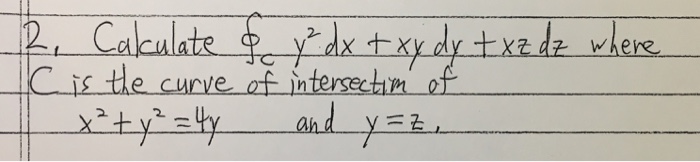 2. Calculate ∮_C y² dx + xy dy + xz dz where
C is the curve of intersection of
x² + y² = 4y and y = z.